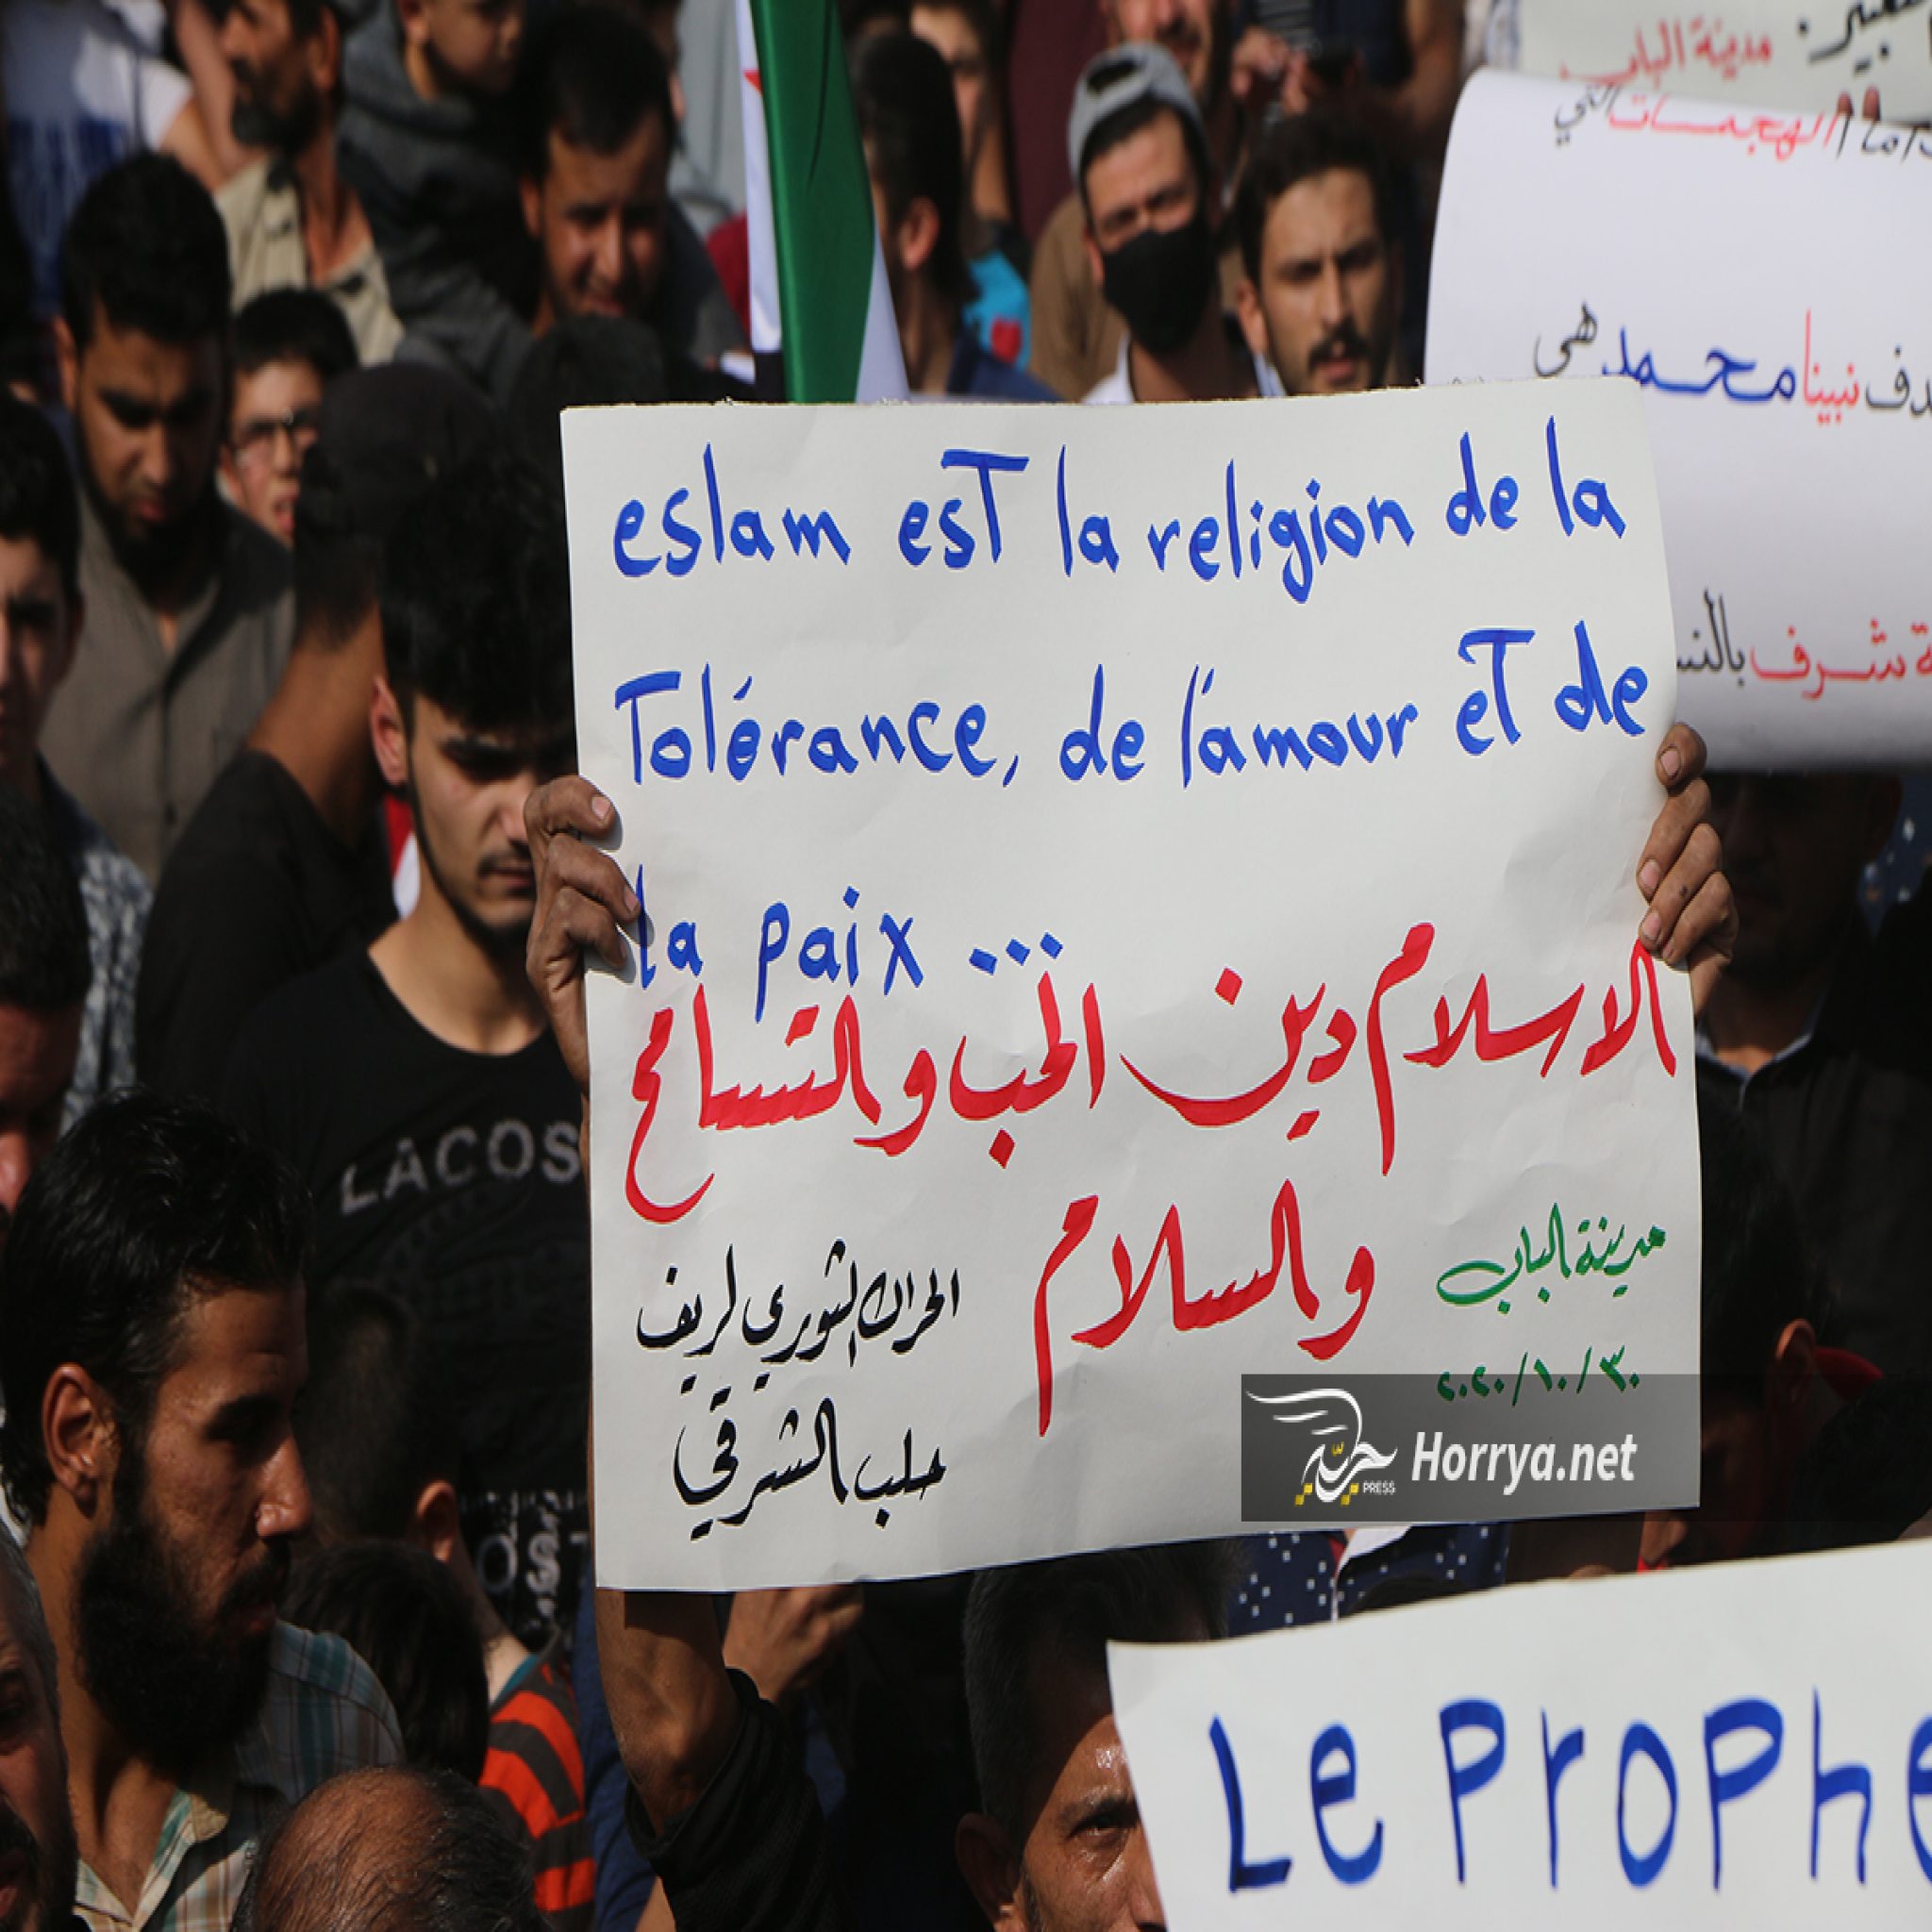 مدينة الباب
الهجمات التي
نبينا محمد هي
شرف
eslam esT la religion de la
Tolérance, de l'amour eT de
la paix ...
الاسلام دين الحب والتسامح
والسلام
مدينة الباب
٢٠٢٠/١٠/٣٠
الحراك الثوري لريف
حلب الشرقي
LACOS
حرية
PRESS
Horrya.net
Le Prophe